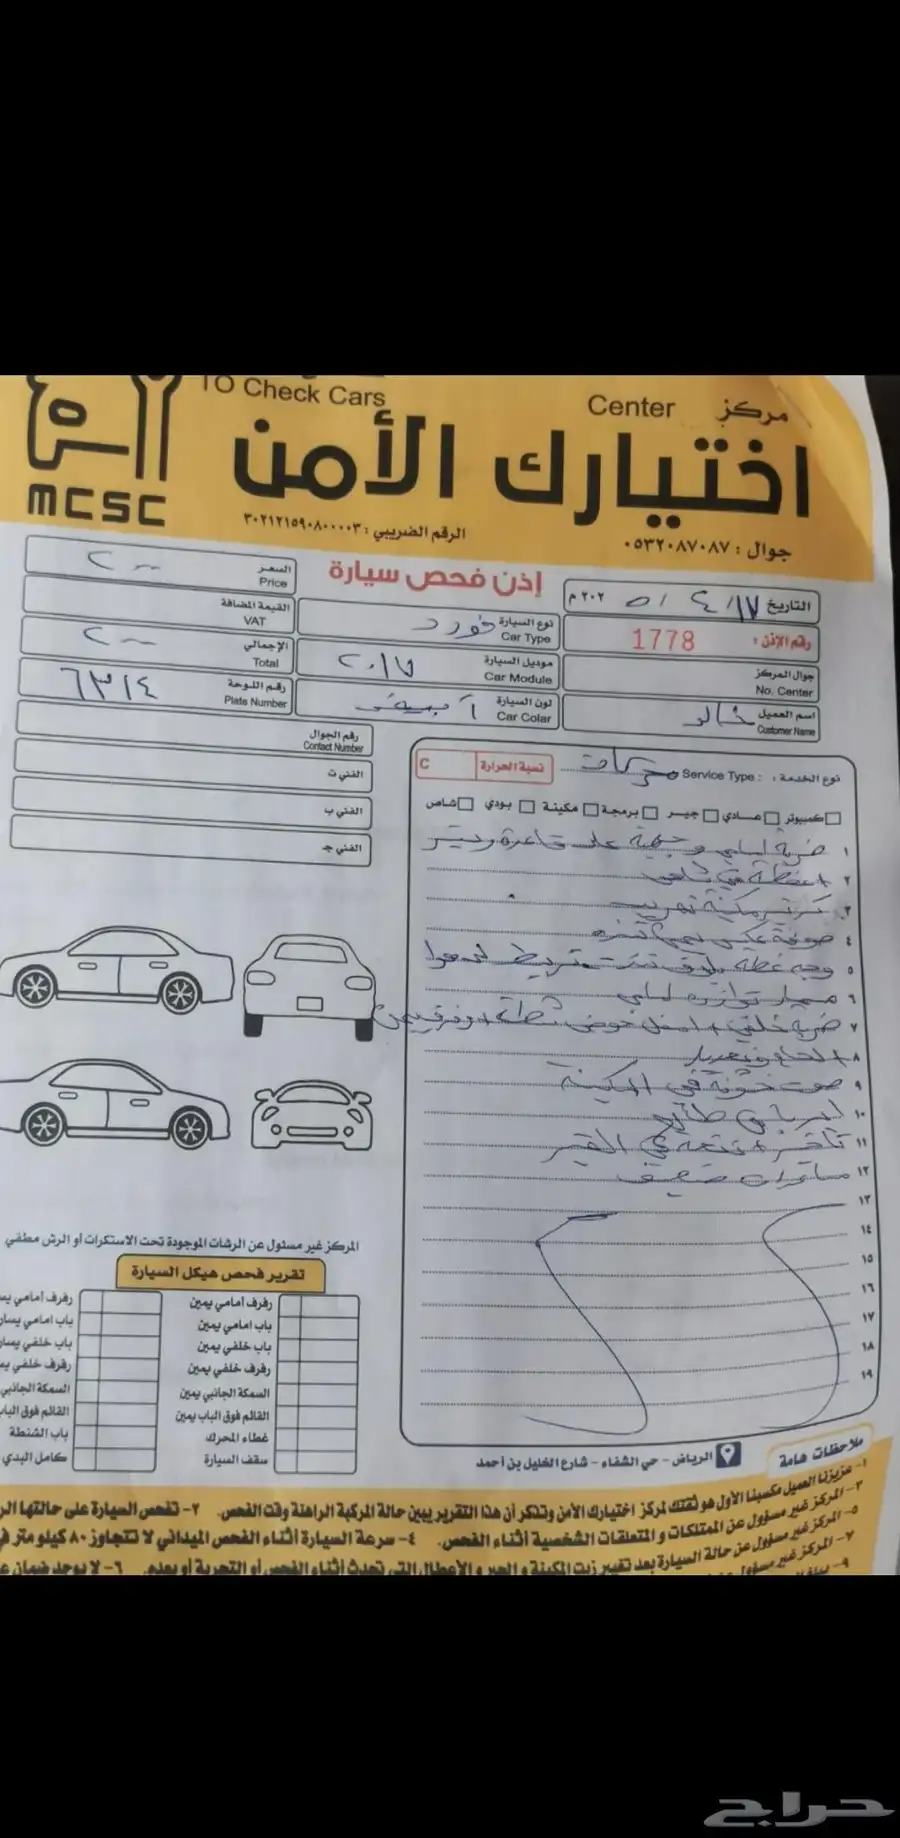 TO Check Cars
مركز Center
اختيارك الأمن
MCSC
جوال : ٠٥٣٢٠٨٧٠٨٧
الرقم الضريبي : ٣٠٢١٢١٥٩٠٨٠٠٠٠٣
إذن فحص سيارة
التاريخ ١٧ / ٤ / ٢٠٢٥ م
رقم الإذن : 1778
جوال المركز
No. Center
اسم العميل خالد
Customer Name
نوع السيارة فورد
Car Type
موديل السيارة ٢٠١٧
Car Module
لون السيارة
Car Colar
السعر ٢٠٠
Price
القيمة المضافة
VAT
الإجمالي ٢٠٠
Total
رقم اللوحة ٦٣١٤
Plate Number
رقم الجوال
Contact Number
الفني ت
الفني ب
الفني جـ
نوع الخدمة : Service Type : محركات
نسبة الحرارة C
كمبيوتر عادي جير برمجة مكينة بودي شاص
١ ضربة امامي وجهية على قاعدة رديتر
٢
٣ كرتير مكينة تهريب
٤ صوفة عكس يمين
٥ وجه غطاء
٦ مسمار توازن امامي
٧ ضربة خلفي اسفل حوض شنطة
٨
٩ صوت خشونة في المكينة
١٠ ايرباق طالع
١١ تأخير نتعة في القير
١٢ ضعيف
١٣
١٤
١٥
١٦
١٧
١٨
١٩
المركز غير مسئول عن الرشات الموجودة تحت الاستكرات أو الرش مطفي
تقرير فحص هيكل السيارة
رفرف أمامي يمين
باب امامي يمين
باب خلفي يمين
رفرف خلفي يمين
السمكة الجانبي يمين
القائم فوق الباب يمين
غطاء المحرك
سقف السيارة
رفرف أمامي
باب امامي يسار
باب خلفي يسار
رفرف خلفي
السمكة الجانبي
القائم فوق
باب الشنطة
كامل البدي
الرياض - حي الشفاء - شارع الخليل بن أحمد
ملاحظات هامة
١- عزيزنا العميل مكسبنا الأول هو ثقتك لمركز اختيارك الأمن وتذكر أن هذا التقرير يبين حالة المركبة الراهنة وقت الفحص. ٢- تفحص السيارة على حالتها
٣- المركز غير مسؤول عن الممتلكات و المتعلقات الشخصية أثناء الفحص. ٤- سرعة السيارة أثناء الفحص الميداني لا تتجاوز ٨٠ كيلو متر
٥- المركز غير مسؤول عن حالة السيارة بعد تغيير زيت المكينة و الجير و الاعطال التي تحدث أثناء الفحص أو التجربة أو بعده. ٦- لا يوجد ضمان
٧- المركز غير مسؤول
حراج